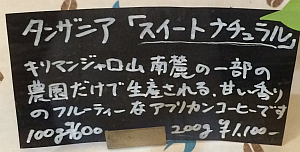 タンザニア「スイートナチュラル」
キリマンジャロ山南麓の一部の
農園だけで生産される、甘い香り
のフルーティーなアフリカンコーヒーです
100g ¥600 200g ¥1,100-